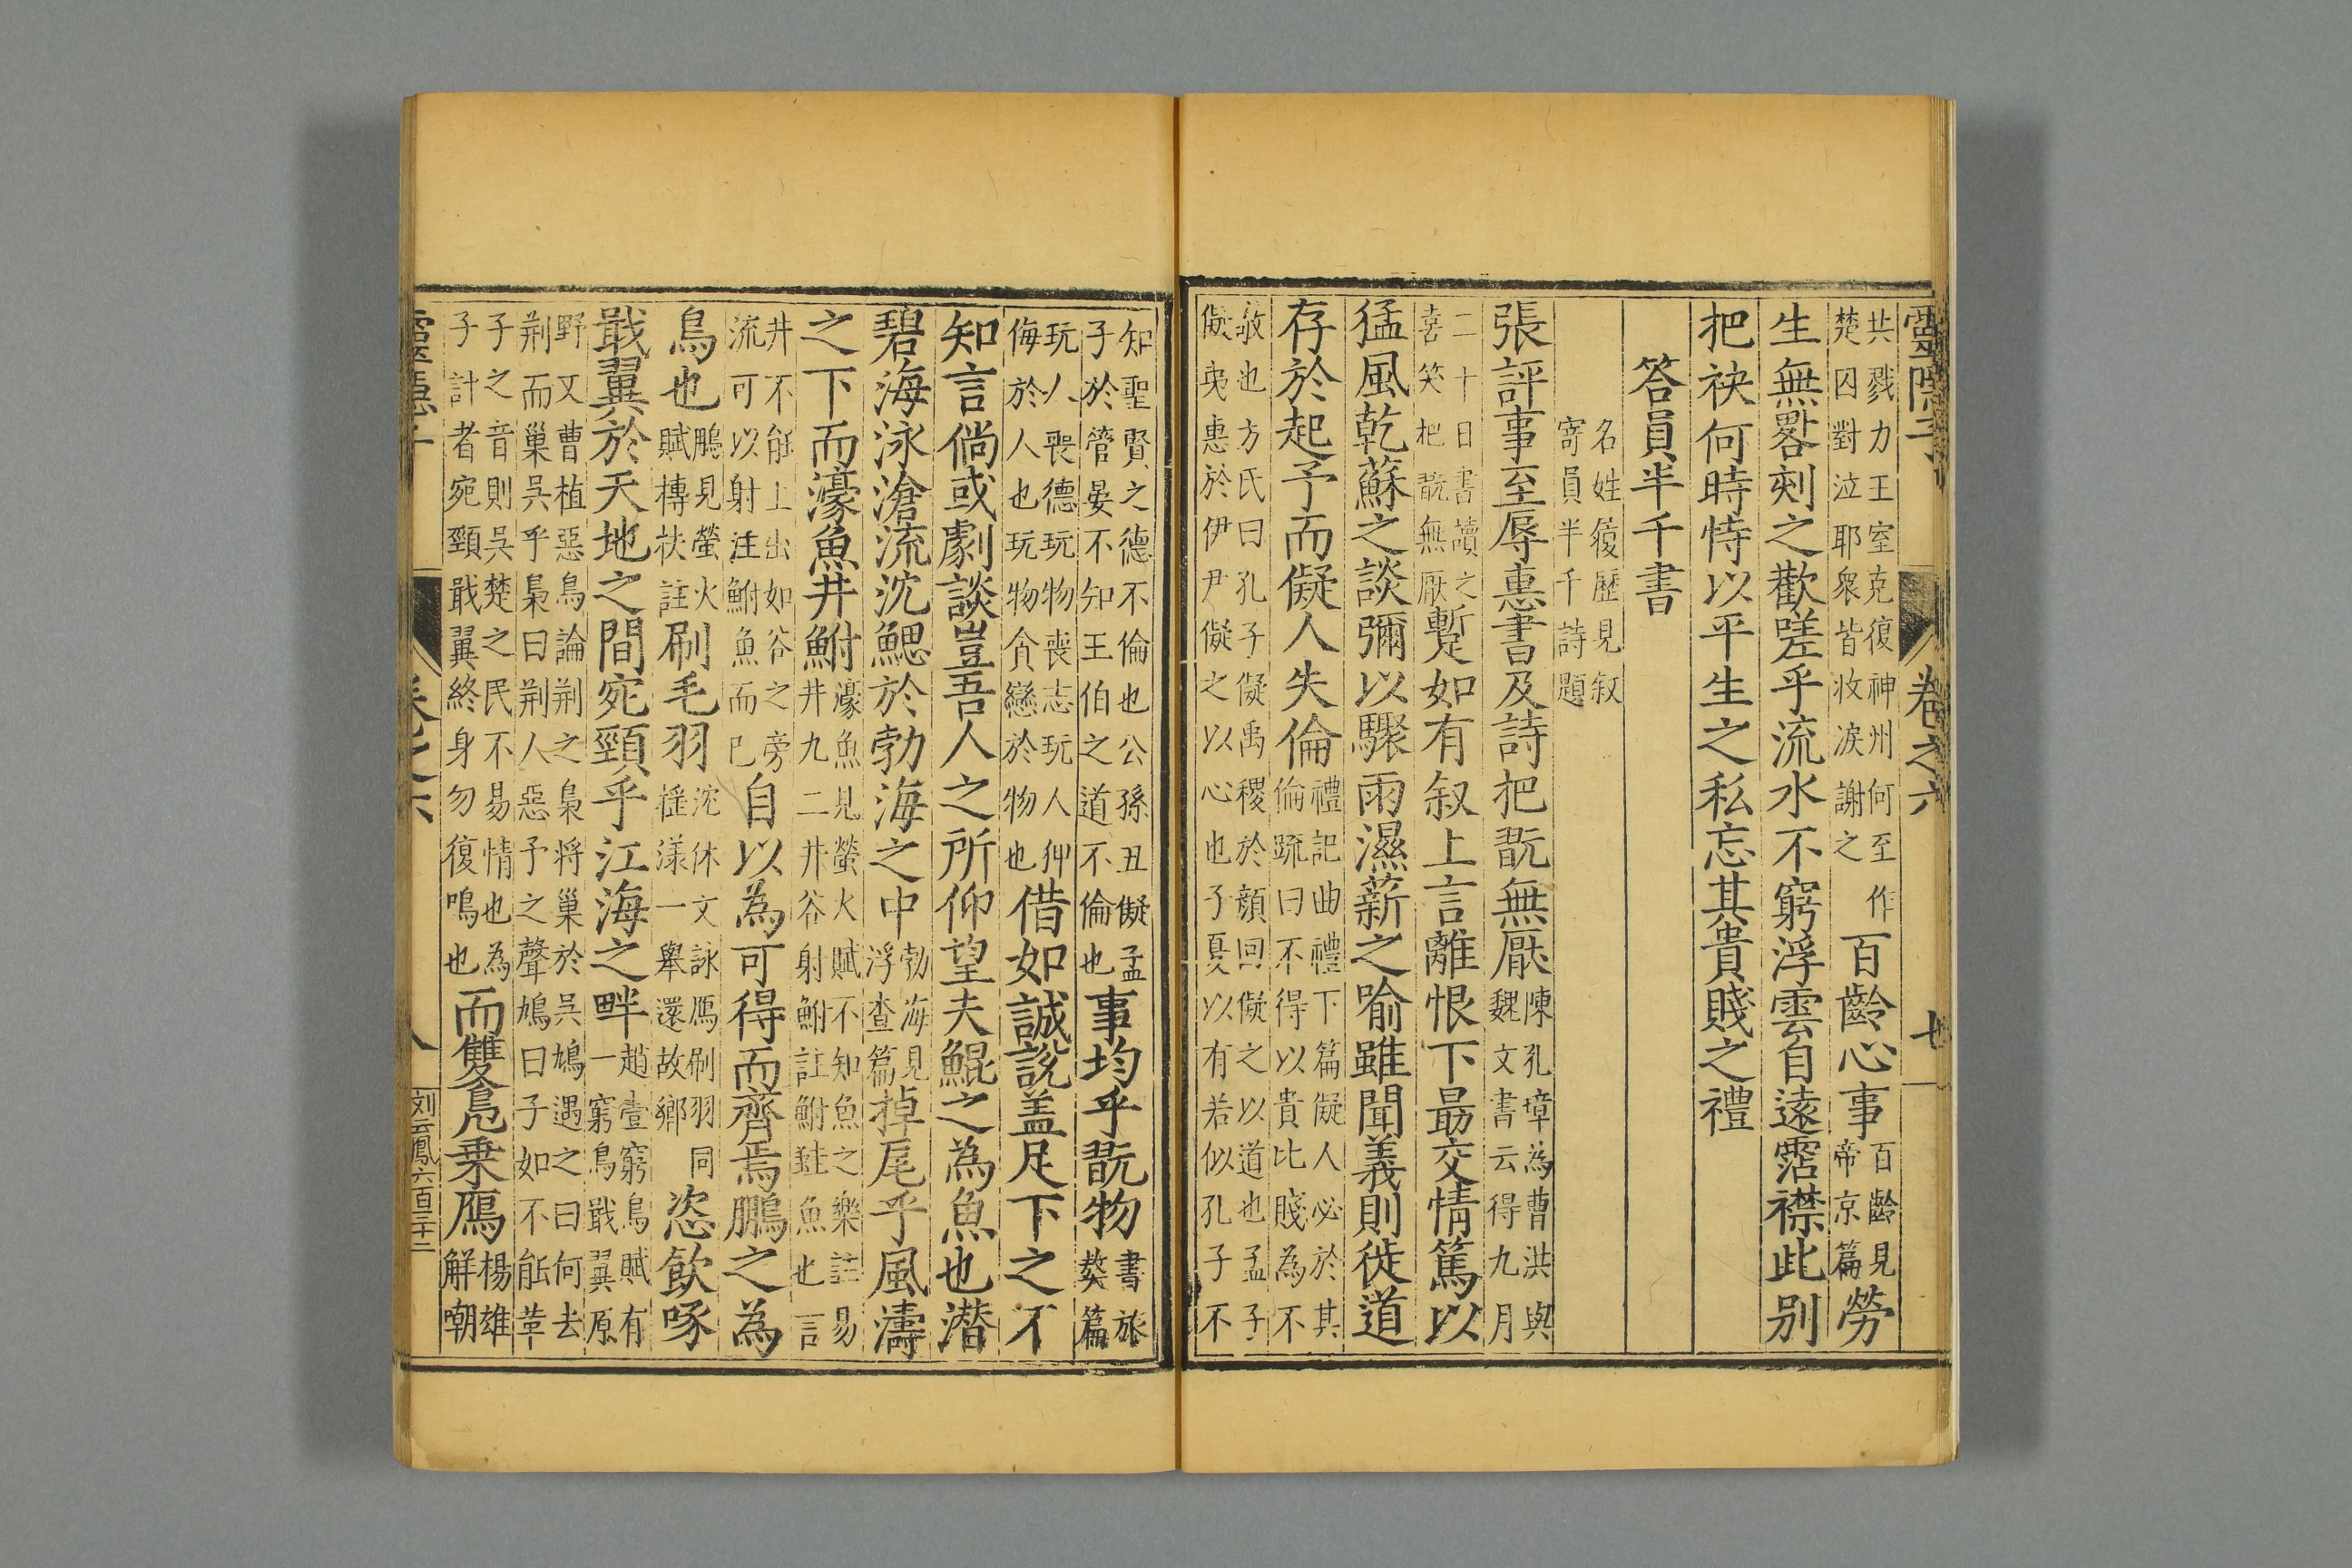 靈隱子
卷之六
七
共戮力王室克復神州何至作
楚囚對泣耶衆皆收淚謝之
百齡心事
百齡見
帝京篇
勞
生無畧刻之歡嗟乎流水不窮浮雲自遠霑襟此別
把袂何時恃以平生之私忘其貴賤之禮
答員半千書
名姓履歷見叙
寄員半千詩題
張評事至辱惠書及詩把翫無厭
陳孔璋為曹洪與
魏文書云得九月
二十日書讀之
喜笑把翫無厭
蹔如有叙上言離恨下最交情篤以
猛風乾蘇之談彌以驟雨濕薪之喻雖聞義則徙道
存於起予而儗人失倫
禮記曲禮下篇儗人必於其
倫䟽曰不得以貴比賤為不
敬也方氏曰孔子儗禹稷於顏回儗之以道也孟子
儗夷惠於伊尹儗之以心也子夏以有若似孔子不
知聖賢之德不倫也公孫丑儗孟
子於管晏不知王伯之道不倫也
事均乎翫物
書旅
獒篇
玩人喪德玩物喪志玩人狎
侮於人也玩物貪戀於物也
借如誠說盖足下之不
知言倘或劇談豈吾人之所仰望夫鯤之為魚也潜
碧海泳滄流沈鰓於勃海之中
勃海見
浮查篇
掉尾乎風濤
之下而濠魚井鮒
濠魚見螢火賦不知魚之樂註易
井九二井谷射鮒註鮒鮭魚也言
井不能上出如谷之旁
流可以射注鮒魚而已
自以為可得而齊焉鵬之為
鳥也
鵬見螢火
賦摶扶註
刷毛羽
沈休文詠鴈刷羽同
搖漾一舉還故鄉
恣飲啄
戢翼於天地之間宛頸乎江海之畔
趙壹窮鳥賦有
一窮鳥戢翼原
野又曹植惡鳥論荆之梟将巢於吳鳩遇之曰何去
荆而巢吳乎梟曰荆人惡予之聲鳩曰子如不能革
子之音則吳楚之民不易情也為
子計者宛頸戢翼終身勿復鳴也
而雙鳬乗鴈
楊雄
解嘲
靈隱子
卷之六
八
刘云鳳六百三十二